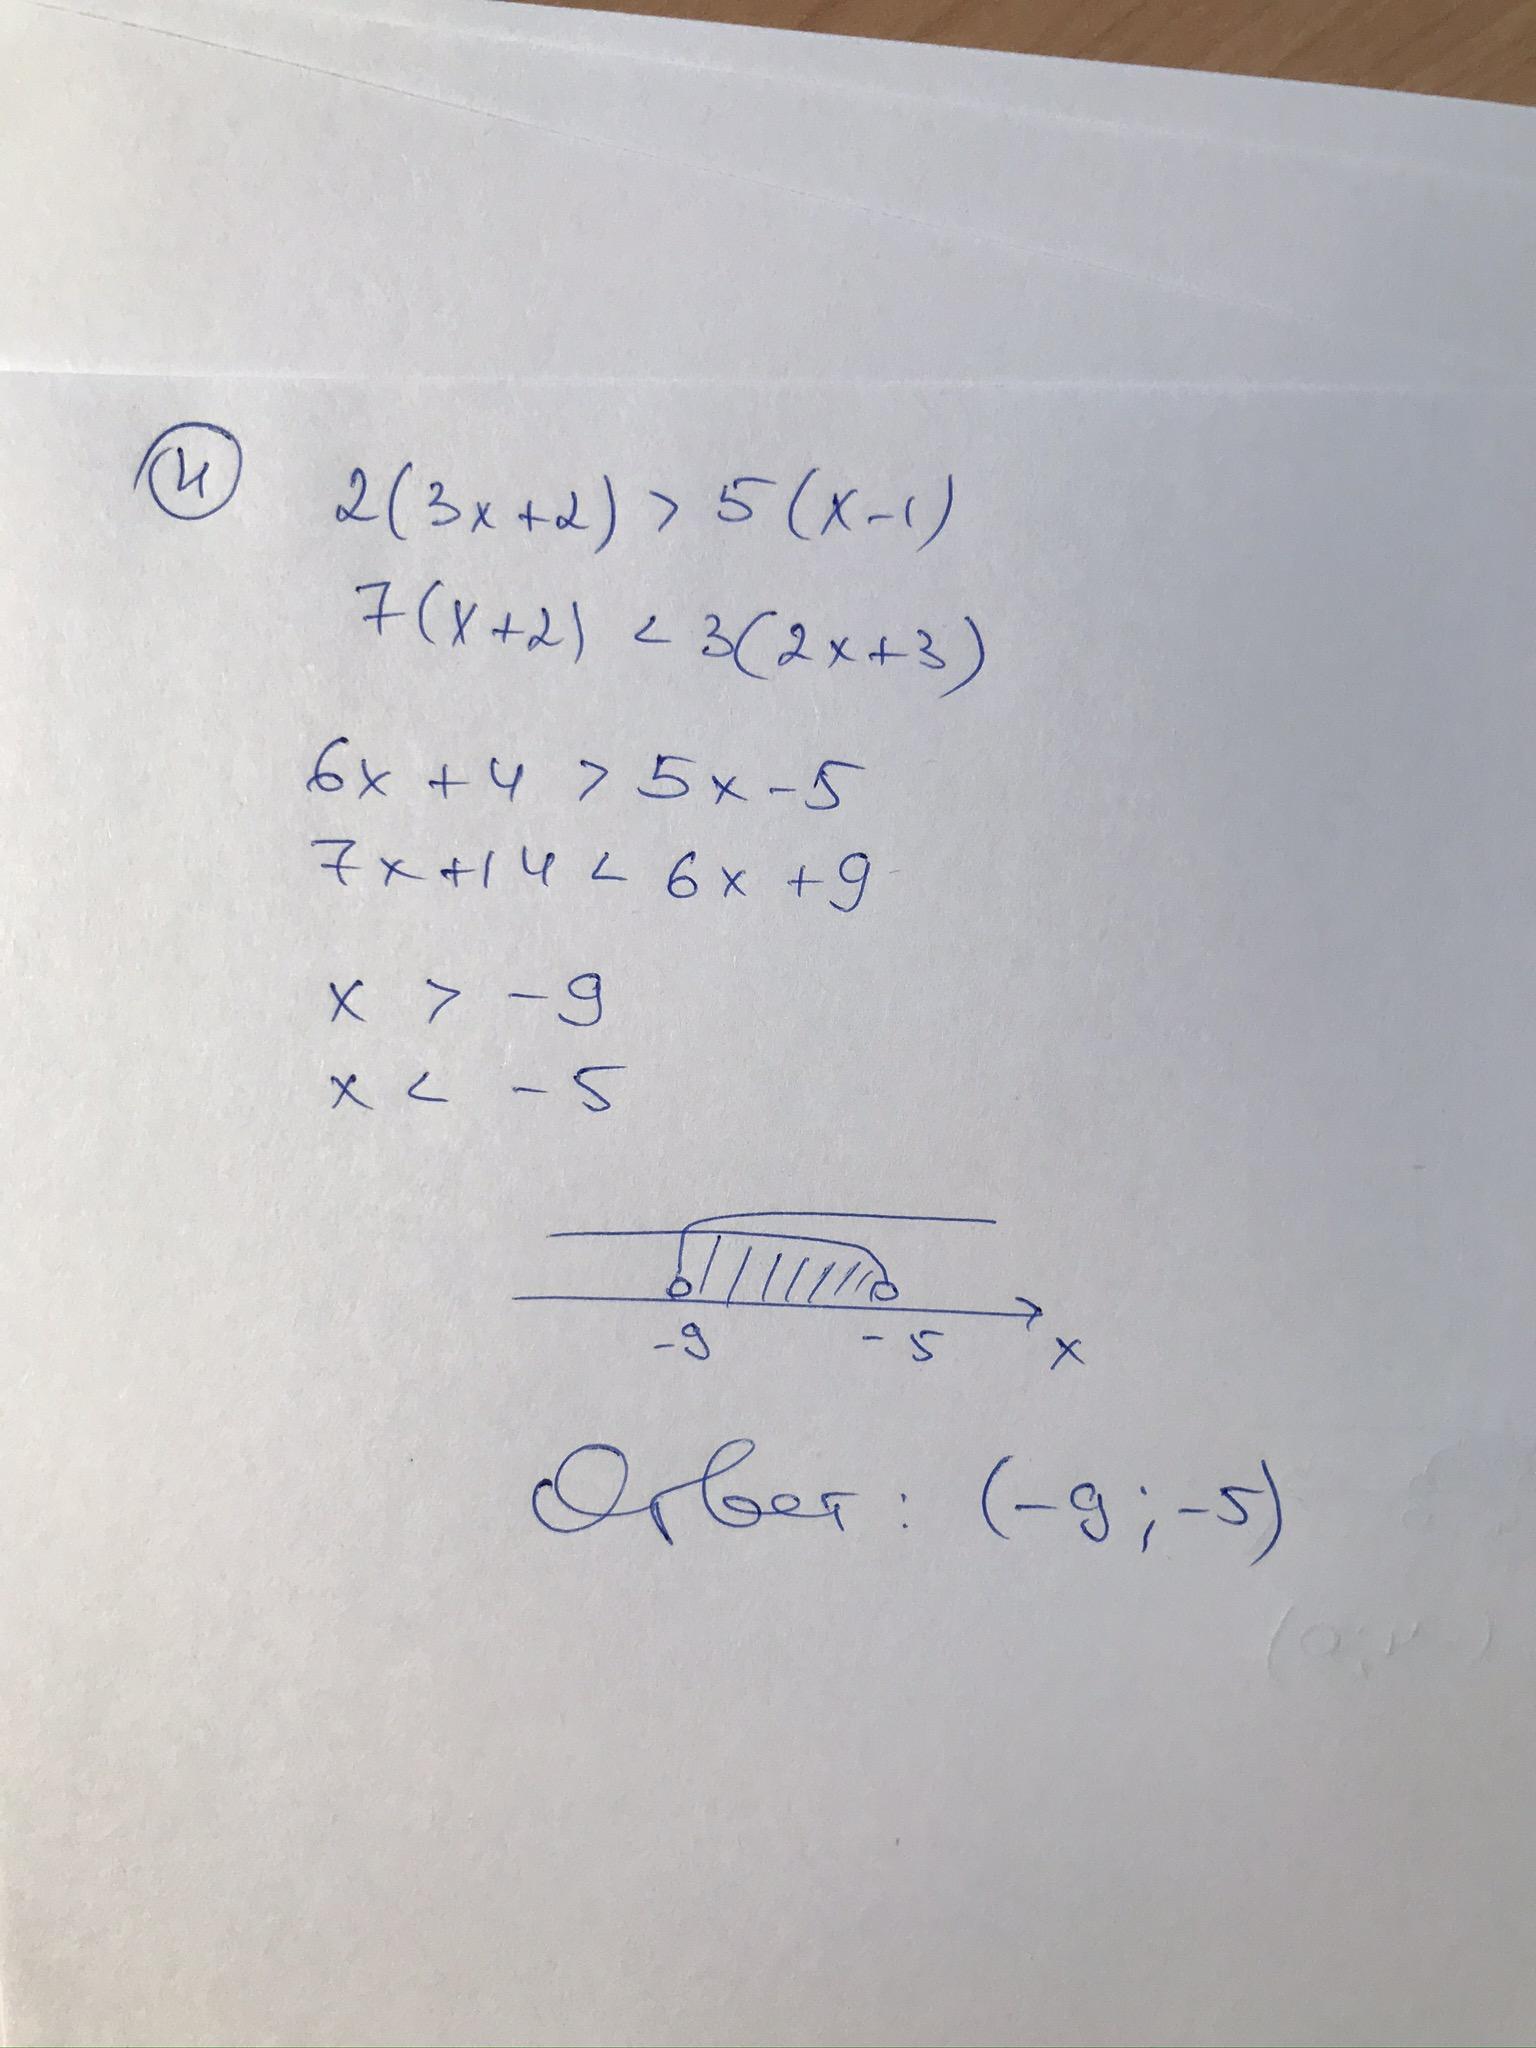 4 2(3x+2) > 5(x-1)
7(x+2) < 3(2x+3)
6x +4 > 5x-5
7x+14 < 6x+9
x > -9
x < -5
-9 -5 x
Ответ: (-9;-5)